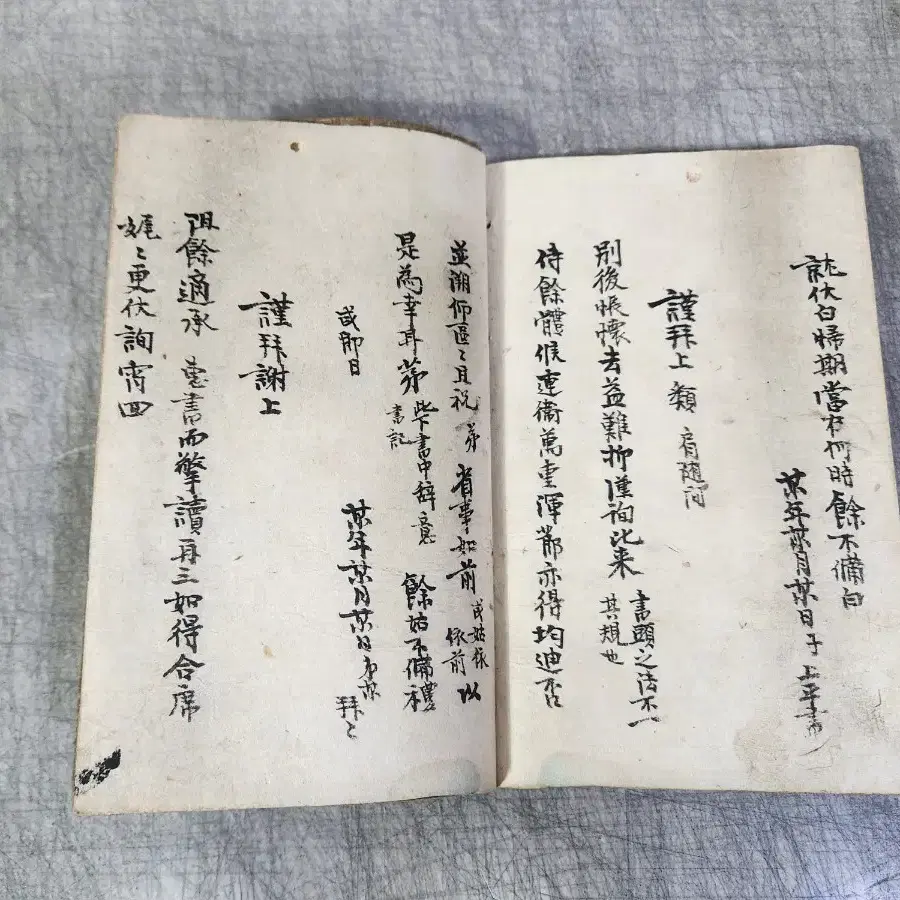 伏白歸期當在何時餘不備白
某年某月某日子 上平書
謹拜上 類
別後悵懷去益難抑謹詢比來 書頭之法不一
其規也
侍餘體候連衛萬重渾節亦得均迪否
並溯仰區〻且祝 弟 省事如前 或姑依
依前 以
是為幸耳弟 此下書中辭意
書記
餘姑不備禮
或即日
某年某月某日弟 拜〻
謹拜謝上
阻餘適承 惠書而擎讀再三如得合席
娓〻更伏詢宵回